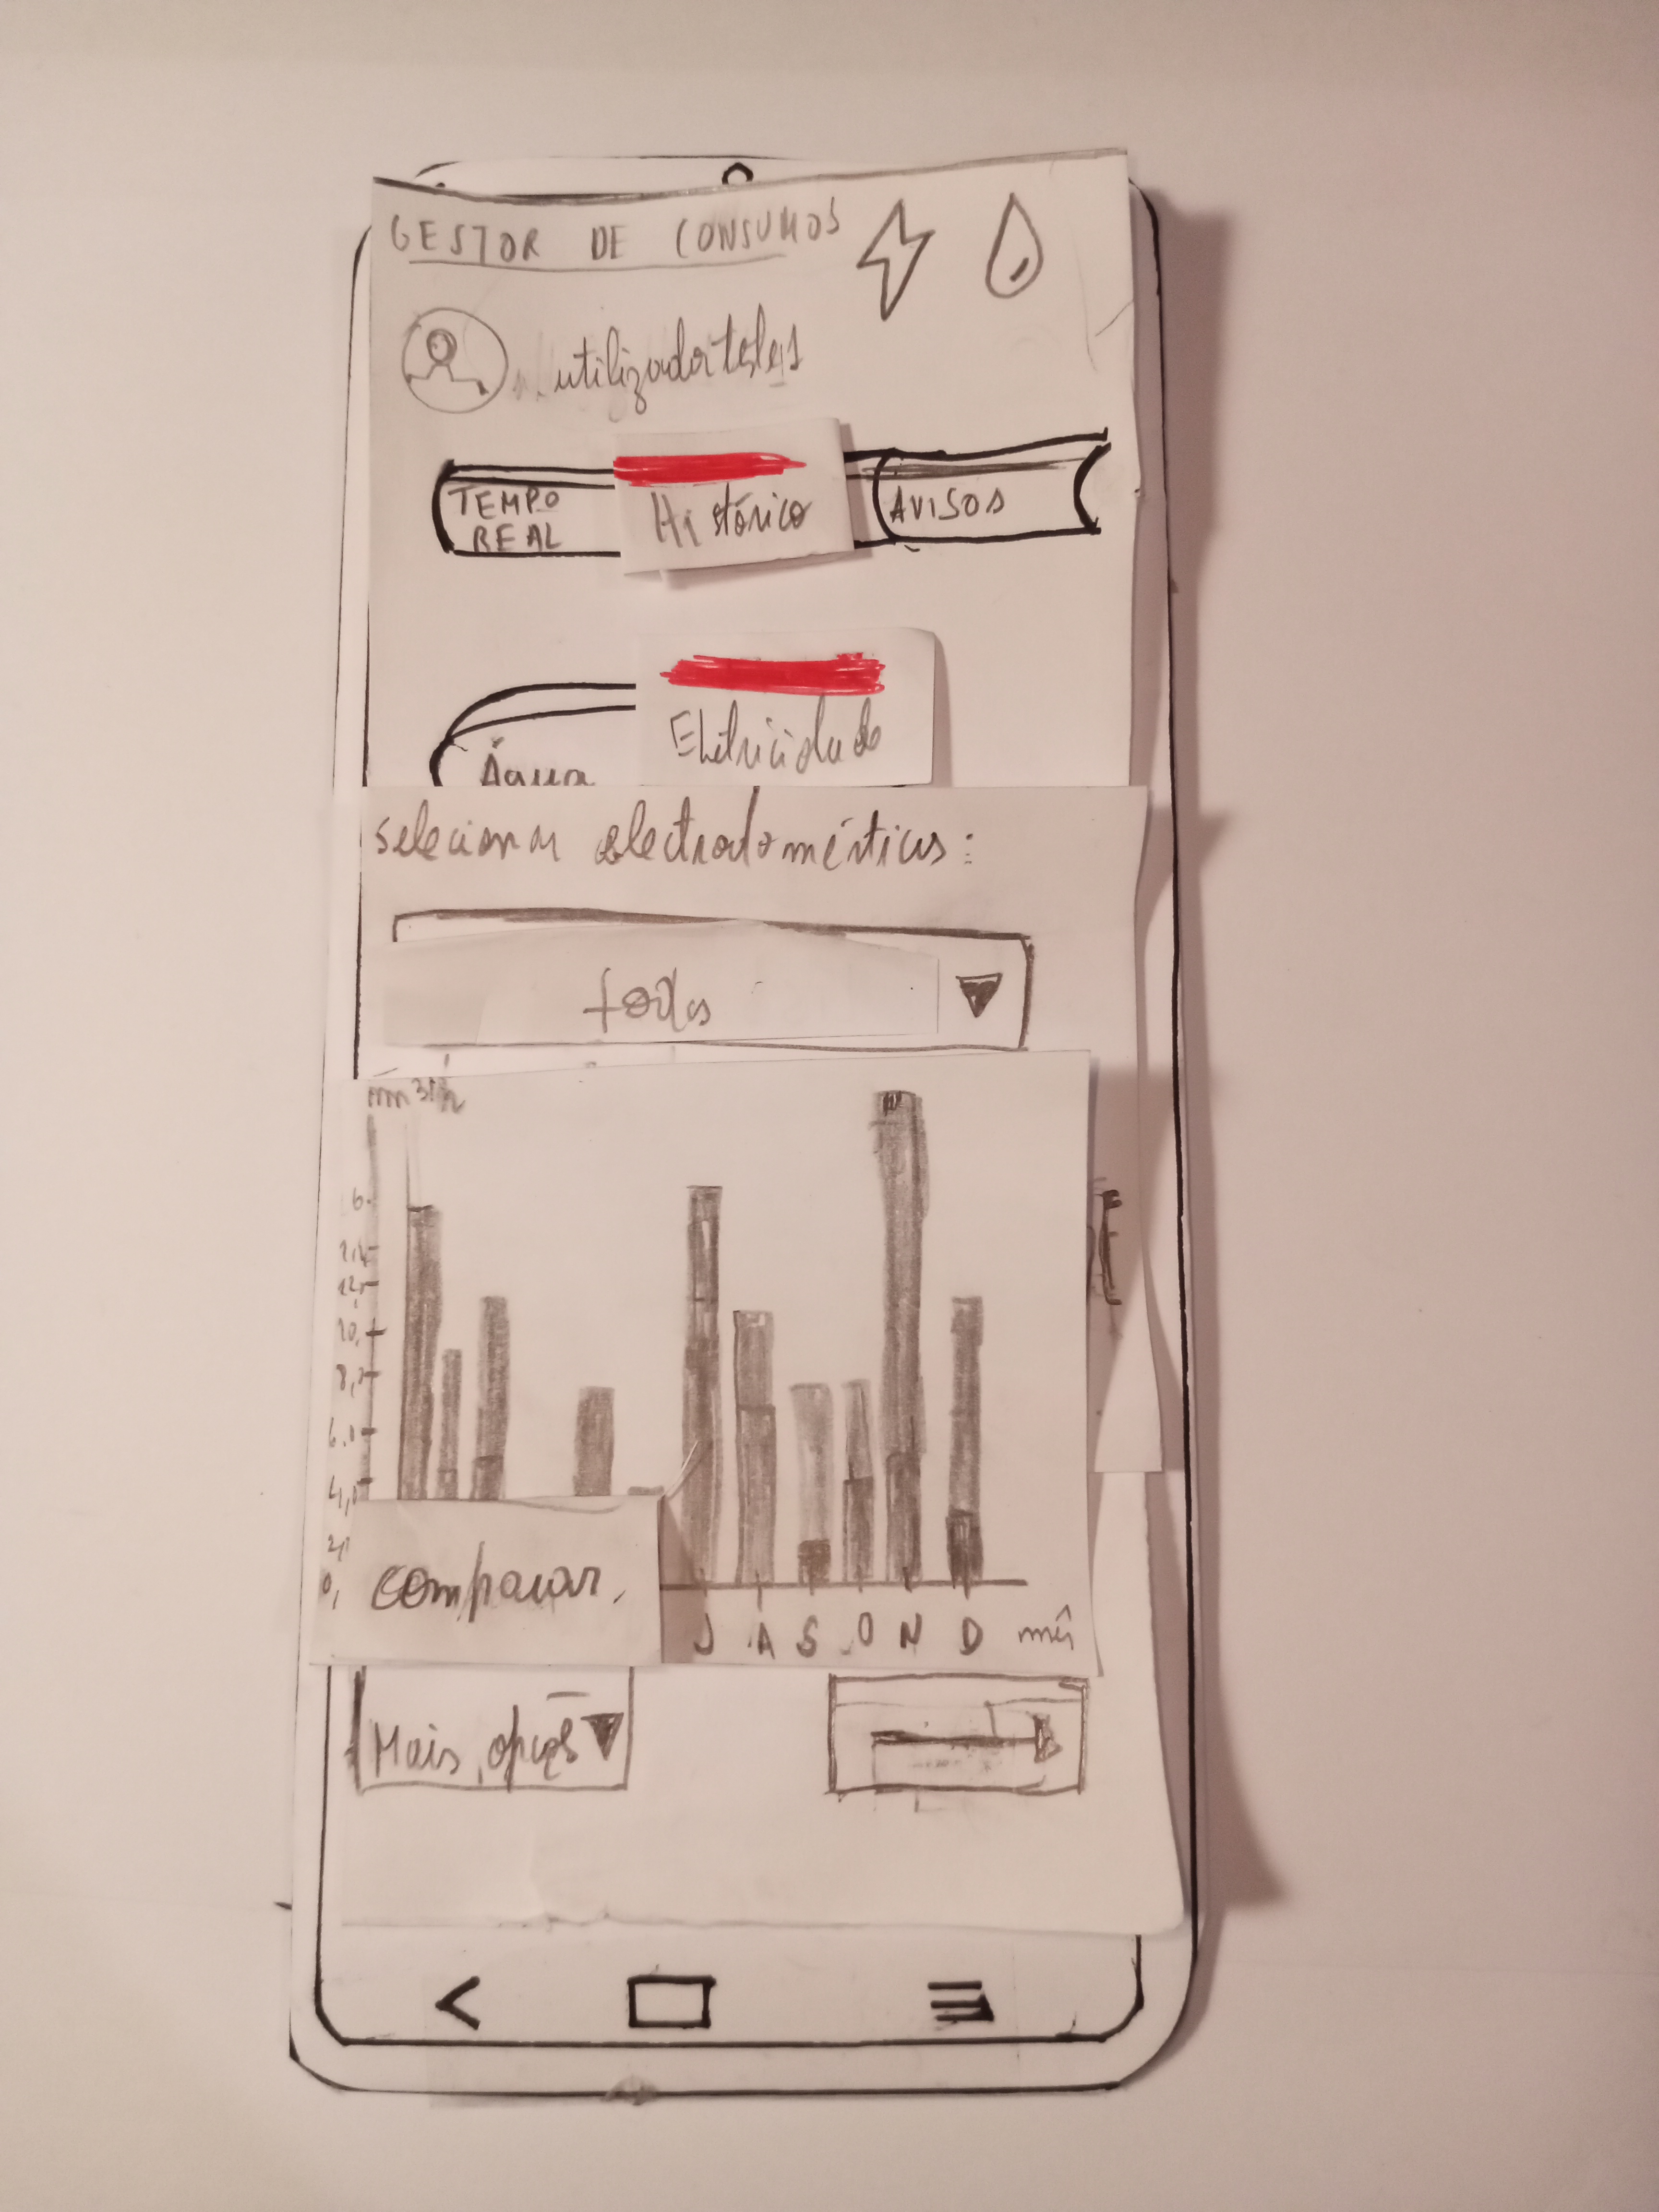 GESTOR DE CONSUMOS
utilizador teste1
TEMPO
REAL
Histórico
AVISOS
Água
Eletricidade
selecionar electrodomésticos:
todos
6
12,
10,
8,
6,
4,
2,
0,
comparar
J A S O N D mês
Mais opções